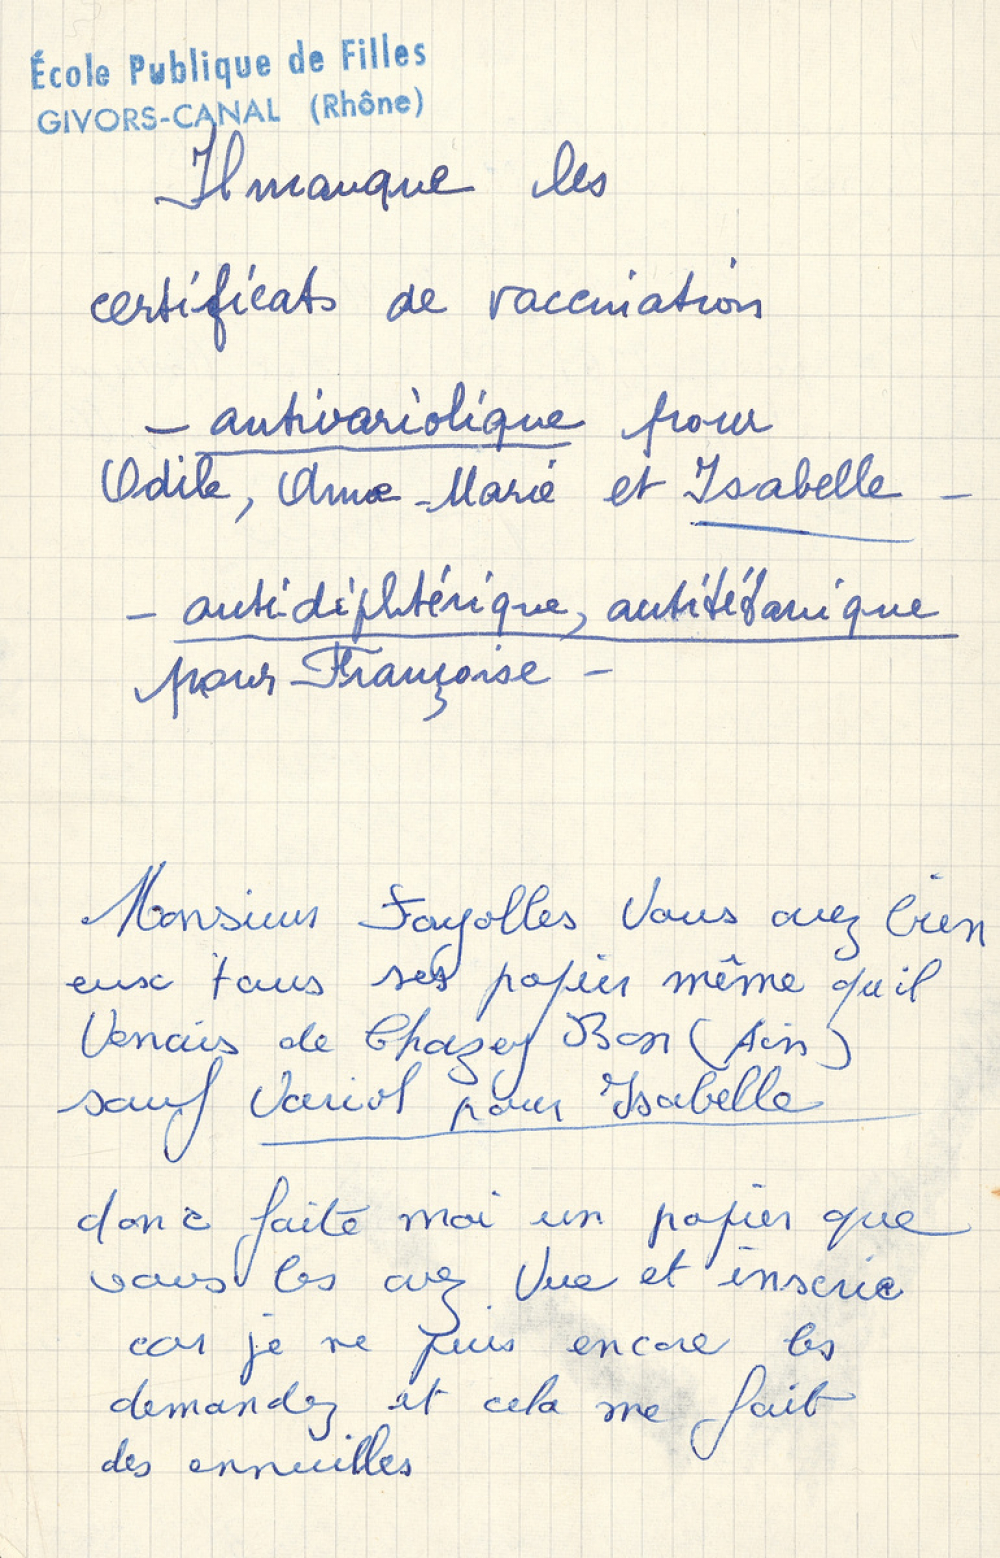 École Publique de Filles
GIVORS-CANAL (Rhône)
Il manque les
certificats de vaccination
– antivariolique pour
Odile, Anne-Marie et Isabelle –
– antidiphtérique, antitétanique
pour Françoise –
Monsieur Fayolles Vous avez bien
eux tous ses papier même qu'il
Venais de Chazey Bon (Ain)
sauf Variol pour Isabelle
donc faite moi un papier que
vous les avez Vue et inscrie
car je ne puis encore les
demandez et cela me fait
des ennuilles